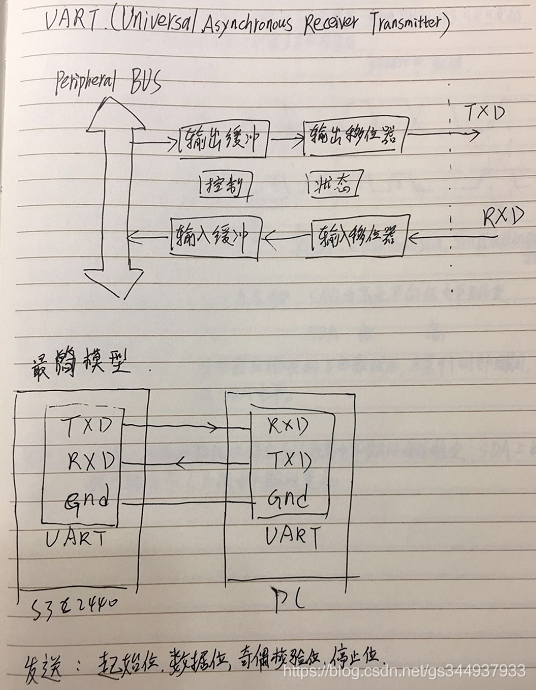 UART.(Universal Asynchronous Receiver Transmitter)
Peripheral BUS
TXD
输出缓冲 输出移位器
控制 状态
RXD
输入缓冲 输入移位器
最简模型.
TXD RXD
RXD TXD
Gnd Gnd
UART UART
S3C2440 PC
发送：起始位,数据位,奇偶校验位,停止位.
https://blog.csdn.net/gs344937933